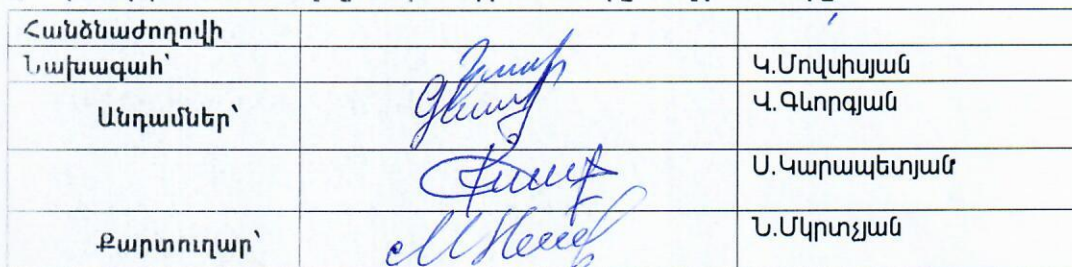 Հանձնաժողովի
Նախագահ՝ Կ.Մովսիսյան
Անդամներ՝ Վ.Գևորգյան
Ս.Կարապետյան
Քարտուղար՝ Ն.Մկրտչյան